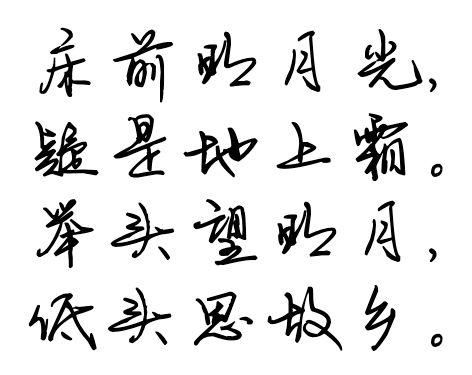 床前明月光,
疑是地上霜。
举头望明月,
低头思故乡。